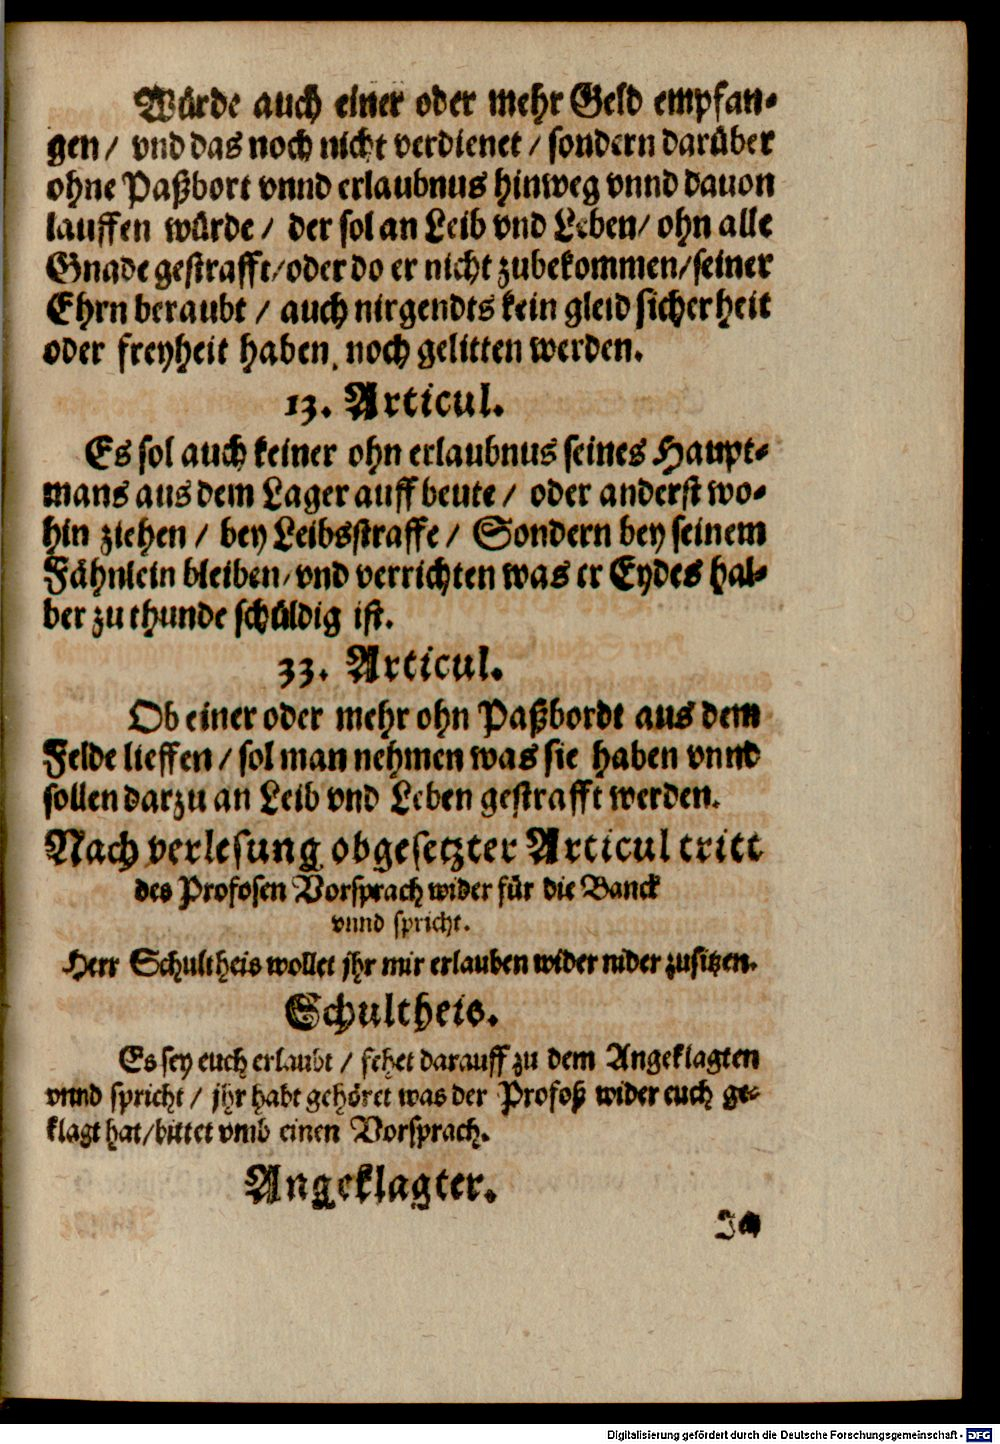 Würde auch einer oder mehr Geld empfan-
gen / vnd das noch nicht verdienet / sondern darüber
ohne Paßbort vnnd erlaubnus hinweg vnnd dauon
lauffen würde / der sol an Leib vnd Leben / ohn alle
Gnade gestrafft / oder do er nicht zubekommen / seiner
Ehrn beraubt / auch nirgendts kein gleid sicherheit
oder freyheit haben, noch gelitten werden.
13. Articul.
Es sol auch keiner ohn erlaubnus seines Haupt-
mans aus dem Lager auff beute / oder anderst wo-
hin ziehen / bey Leibsstraffe / Sondern bey seinem
Fähnlein bleiben / vnd verrichten was er Eydes hal-
ber zu thunde schüldig ist.
33. Articul.
Ob einer oder mehr ohn Paßbordt aus dem
Felde lieffen / sol man nehmen was sie haben vnnd
sollen darzu an Leib vnd Leben gestrafft werden.
Nach verlesung obgesetzter Articul tritt
des Profosen Vorsprach wider für die Banck
vnnd spricht.
Herr Schultheis wollet jhr mir erlauben wider nider zusitzen.
Schultheis.
Es sey euch erlaubt / sehet darauff zu dem Angeklagten
vnnd spricht / jhr habt gehöret was der Profoß wider euch ge-
klagt hat / bittet vmb einen Vorsprach.
Angeklagter.
Digitalisierung gefördert durch die Deutsche Forschungsgemeinschaft - DFG